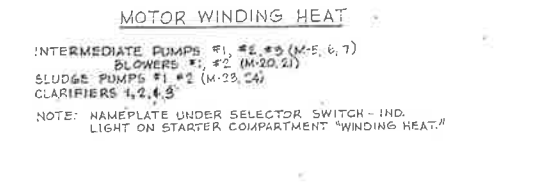 MOTOR WINDING HEAT
INTERMEDIATE PUMPS #1, #2, #3 (M-5, 6, 7)
BLOWERS #1, #2 (M-20, 21)
SLUDGE PUMPS #1 #2 (M-23, 24)
CLARIFIERS 1, 2, & 3
NOTE: NAMEPLATE UNDER SELECTOR SWITCH - IND.
LIGHT ON STARTER COMPARTMENT "WINDING HEAT."